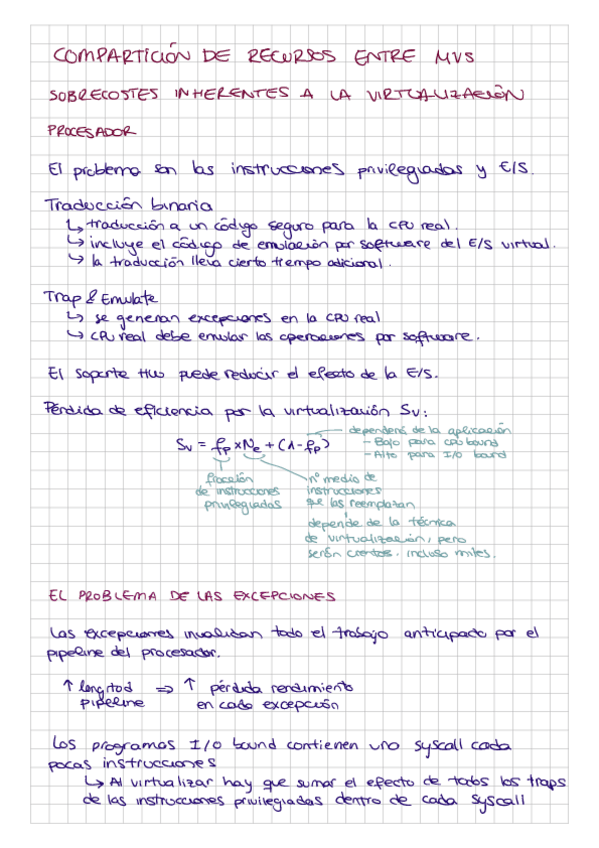 COMPARTICIÓN DE RECURSOS ENTRE MVS
SOBRECOSTES INHERENTES A LA VIRTUALIZACIÓN
PROCESADOR
El problema son las instrucciones privilegiadas y E/S.
Traducción binaria
↳ traducción a un código seguro para la CPU real.
↳ incluye el código de emulación por software del E/S virtual.
↳ la traducción lleva cierto tiempo adicional.
Trap & Emulate
↳ se generan excepciones en la CPU real
↳ CPU real debe emular las operaciones por software.
El soporte HW puede reducir el efecto de la E/S.
Pérdida de eficiencia por la virtualización Sv:
Sv = fp x Ne + (1 - fp)
dependerá de la aplicación
- Bajo para CPU bound
- Alto para I/O bound
fracción
de instrucciones
privilegiadas
nº medio de
instrucciones
que las reemplazan
depende de la técnica
de virtualización, pero
serán cientos. incluso miles.
EL PROBLEMA DE LAS EXCEPCIONES
Las excepciones invalidan todo el trabajo anticipado por el
pipeline del procesador.
↑ longitud ⇒ ↑ pérdida rendimiento
pipeline en cada excepción
Los programas I/O bound contienen una syscall cada
pocas instrucciones
↳ Al virtualizar hay que sumar el efecto de todos los traps
de las instrucciones privilegiadas dentro de cada syscall